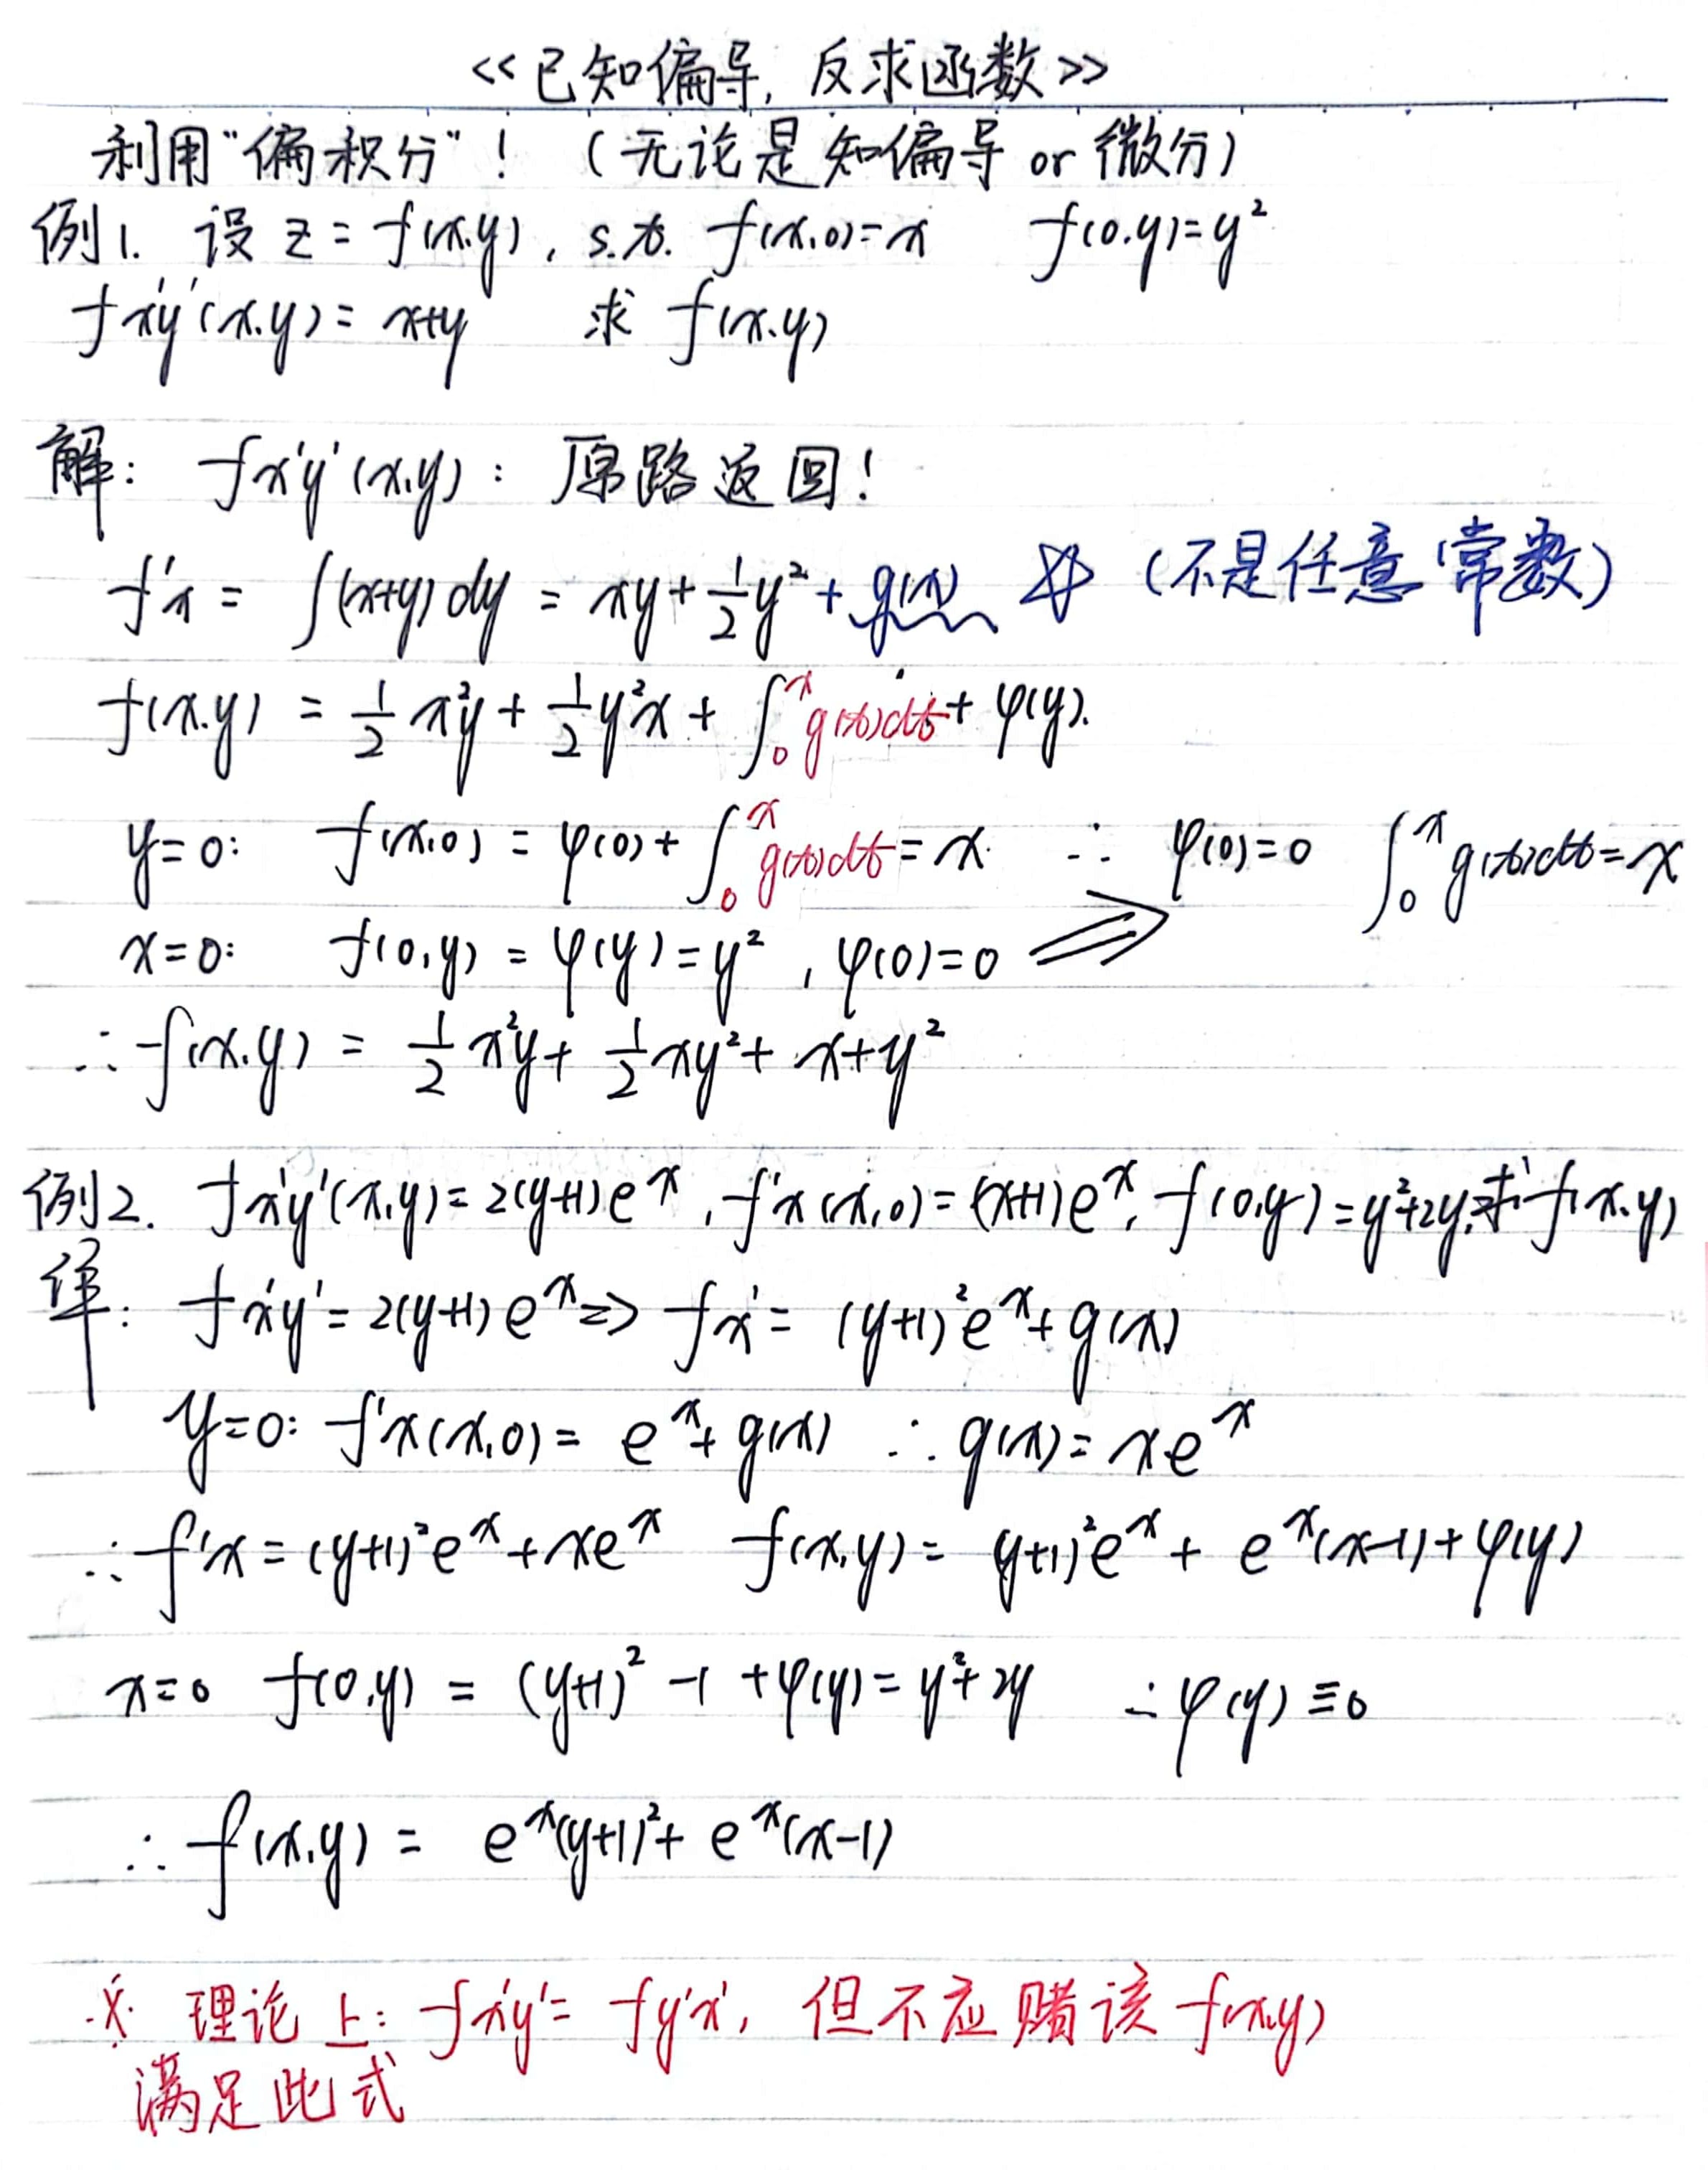 <<已知偏导, 反求函数>>
利用"偏积分"! (无论是知偏导 or 微分)
例1. 设 z = f(x.y), s.t. f(x,0)=x f(0.y)=y²
fx'y'(x.y) = x+y 求 f(x.y)
解: fx'y'(x,y): 原路返回!
f'x = ∫(x+y)dy = xy + 1/2 y² + g(x) ☆ (不是任意常数)
f(x.y) = 1/2 x²y + 1/2 y²x + ∫₀ˣ g(t)dt + φ(y).
y=0: f(x,0) = φ(0) + ∫₀ˣ g(t)dt = x ∴ φ(0)=0 ∫₀ˣ g(t)dt = x
x=0: f(0,y) = φ(y) = y², φ(0)=0 ⟹
∴ f(x.y) = 1/2 x²y + 1/2 xy² + x+y²
例2. fx'y'(x,y)=2(y+1)eˣ, f'x(x,0)=(x+1)eˣ, f(0,y)=y²+2y, 求 f(x.y)
解: fx'y' = 2(y+1)eˣ => fx' = (y+1)²eˣ + g(x)
y=0: f'x(x,0) = eˣ + g(x) ∴ g(x) = xeˣ
∴ f'x = (y+1)²eˣ + xeˣ f(x,y) = (y+1)²eˣ + eˣ(x-1) + φ(y)
x=0 f(0,y) = (y+1)² -1 + φ(y) = y²+2y ∴ φ(y) ≡ 0
∴ f(x.y) = eˣ(y+1)² + eˣ(x-1)
※ 理论上: fx'y' = fy'x', 但不应赌该 f(x,y)
满足此式